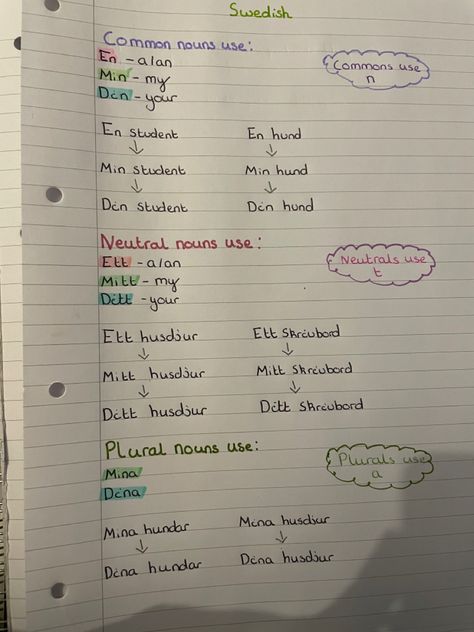 Swedish
Common nouns use:
En - a/an
Min - my
Din - your
Commons use
n
En student En hund
↓ ↓
Min student Min hund
↓ ↓
Din student Din hund
Neutral nouns use:
Ett - a/an
Mitt - my
Ditt - your
Neutrals use
t
Ett husdjur Ett Skrivbord
↓ ↓
Mitt husdjur Mitt Skrivbord
↓ ↓
Ditt husdjur Ditt Skrivbord
Plural nouns use:
Mina
Dina
Plurals use
a
Mina hundar Mina husdjur
↓ ↓
Dina hundar Dina husdjur